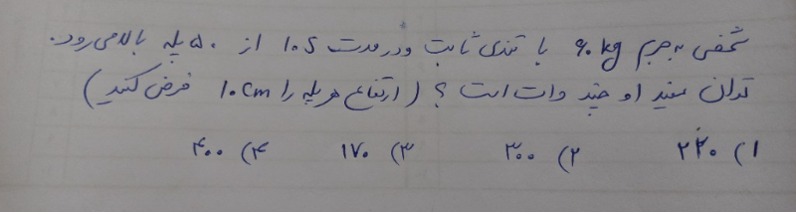 شخصی به جرم ۶۰ kg با تندی ثابت و در مدت ۱۰s از ۵۰ پله بالا می رود.
توان مفید او چند وات است ؟ ( ارتفاع هر پله را ۱۰cm فرض کنید )
۱) ۲۲۰ ۲) ۳۰۰ ۳) ۱۷۰ ۴) ۴۰۰